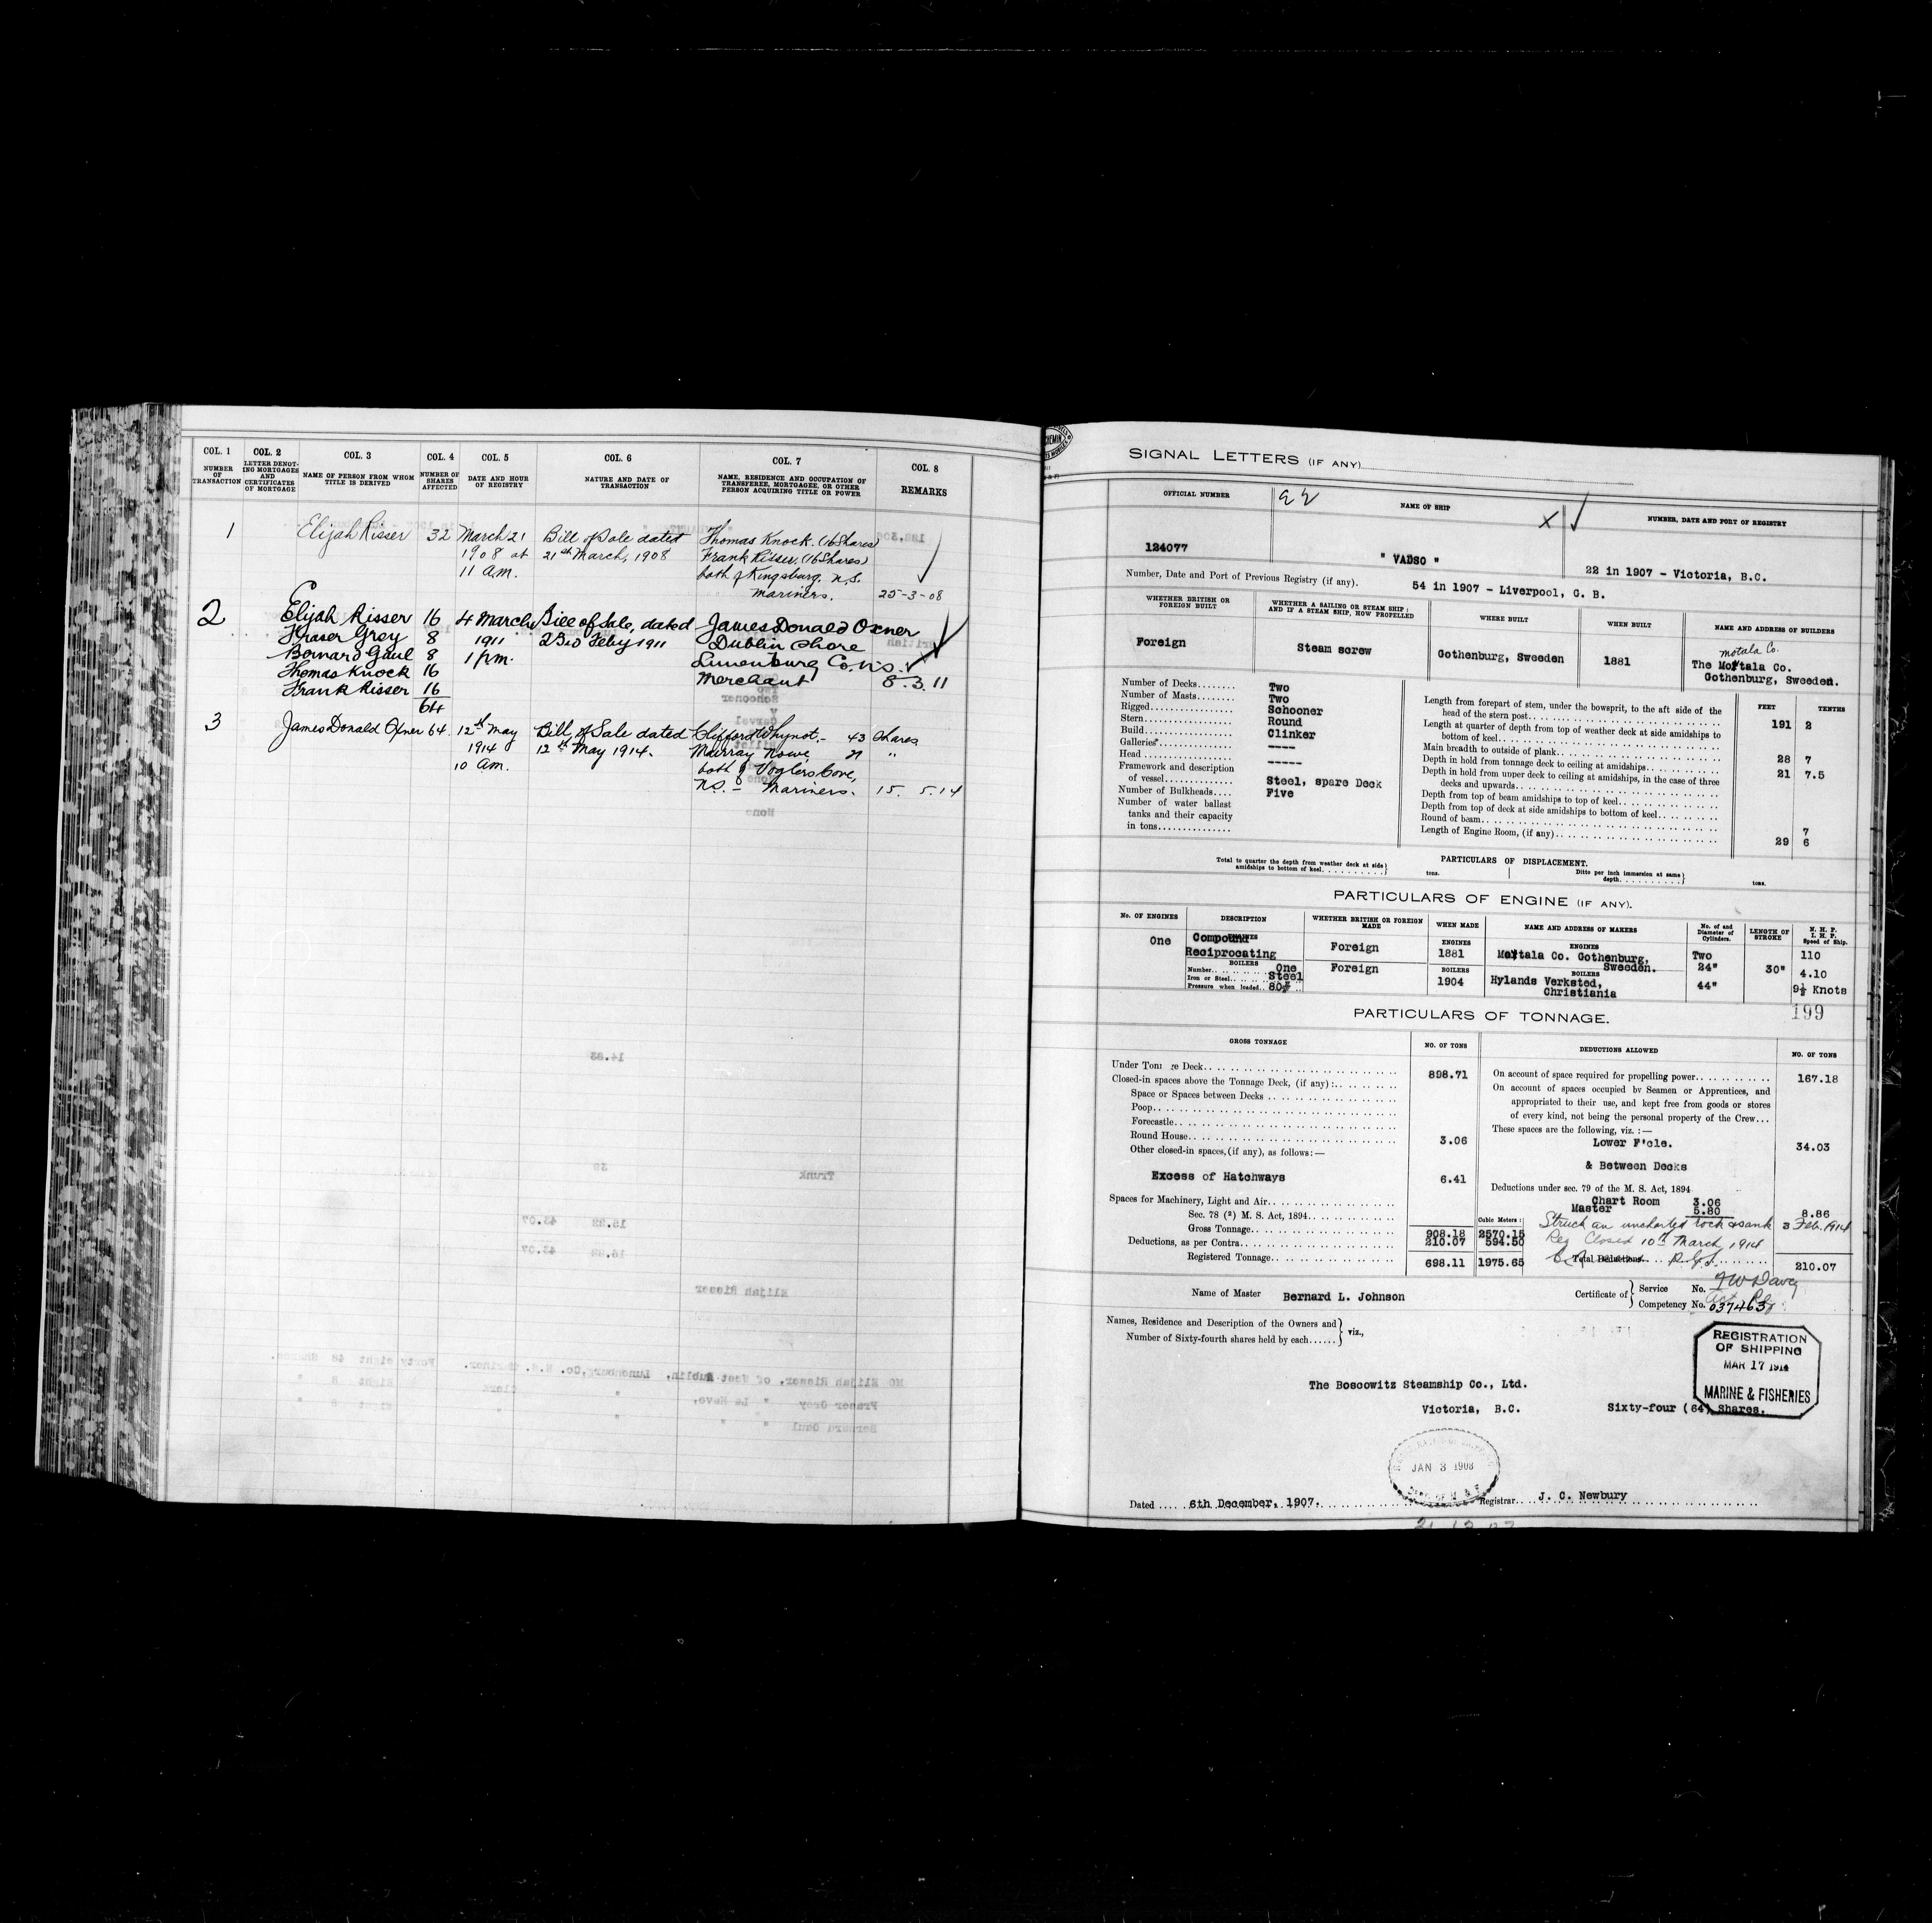 COL. 1 COL. 2 COL. 3 COL. 4 COL. 5 COL. 6 COL. 7 COL. 8
NUMBER OF TRANSACTION
LETTER DENOTING MORTGAGES AND CERTIFICATES OF MORTGAGE
NAME OF PERSON FROM WHOM TITLE IS DERIVED
NUMBER OF SHARES AFFECTED
DATE AND HOUR OF REGISTRY
NATURE AND DATE OF TRANSACTION
NAME, RESIDENCE AND OCCUPATION OF TRANSFEREE, MORTGAGEE, OR OTHER PERSON ACQUIRING TITLE OR POWER
REMARKS
1 Elijah Risser 32 March 21 Bill of Sale dated Thomas Knock (16 Shares)
1908 at 21st March, 1908 Frank Risser (16 Shares)
11 A.M. both of Kingsburg. N.S.
Mariners. 25-3-08
2 Elijah Risser 16 4 March Bill of Sale, dated James Donald Oxner
Fraser Grey 8 1911 23rd Feby 1911 Dublin Shore
Bernard Gaul 8 1 p.m. Lunenburg Co. N.S.
Thomas Knock 16 Merchant 8.3.11
Frank Risser 16
64
3 James Donald Oxner 64. 12th May Bill of Sale dated Clifford Whynot. - 43 Shares
1914 12th May 1914. Murray Nowe, 21 "
10 am. both of Voglers Cove,
NS. - Mariners. 15. 5.14
SIGNAL LETTERS (IF ANY)
OFFICIAL NUMBER NAME OF SHIP NUMBER, DATE AND PORT OF REGISTRY
124077 " VADSO " 22 in 1907 - Victoria, B.C.
Number, Date and Port of Previous Registry (if any). 54 in 1907 - Liverpool, G. B.
WHETHER BRITISH OR FOREIGN BUILT
WHETHER A SAILING OR STEAM SHIP; AND IF A STEAM SHIP, HOW PROPELLED
WHERE BUILT
WHEN BUILT
NAME AND ADDRESS OF BUILDERS
Motala Co.
Foreign Steam screw Gothenburg, Sweden 1881 The Motala Co.
Gothenburg, Sweden.
Number of Decks Two
Number of Masts Two
Rigged Schooner
Stern Round
Build Clinker
Galleries ----
Head -----
Framework and description of vessel Steel, spare Deck
Number of Bulkheads Five
Number of water ballast tanks and their capacity in tons
FEET TENTHS
Length from forepart of stem, under the bowsprit, to the aft side of the head of the stern post 191 2
Length at quarter of depth from top of weather deck at side amidships to bottom of keel
Main breadth to outside of plank 28 7
Depth in hold from tonnage deck to ceiling at amidships 21 7.5
Depth in hold from upper deck to ceiling at amidships, in the case of three decks and upwards
Depth from top of beam amidships to top of keel
Depth from top of deck at side amidships to bottom of keel
Round of beam 7
Length of Engine Room, (if any) 29 6
PARTICULARS OF DISPLACEMENT.
Total to quarter the depth from weather deck at side amidships to bottom of keel tons. Ditto per inch immersion at same depth tons.
PARTICULARS OF ENGINE (IF ANY).
No. OF ENGINES DESCRIPTION WHETHER BRITISH OR FOREIGN MADE WHEN MADE NAME AND ADDRESS OF MAKERS No. of and Diameter of Cylinders. LENGTH OF STROKE N. H. P. I. H. P. Speed of Ship.
ENGINES ENGINES ENGINES
One Compound Reciprocating Foreign 1881 Motala Co. Gothenburg, Sweden. Two 24" 44" 30" 110
BOILERS BOILERS BOILERS
Number One
Iron or Steel Steel
Pressure when loaded 80#
Foreign 1904 Hylands Verksted, Christiania 4.10
9½ Knots
199
PARTICULARS OF TONNAGE.
GROSS TONNAGE NO. OF TONS DEDUCTIONS ALLOWED NO. OF TONS
Under Tonnage Deck 898.71
Closed-in spaces above the Tonnage Deck, (if any) :
Space or Spaces between Decks
Poop
Forecastle
Round House 3.06
Other closed-in spaces, (if any), as follows:—
Excess of Hatchways 6.41
Spaces for Machinery, Light and Air
Sec. 78 (2) M. S. Act, 1894
Cubic Meters:
Gross Tonnage 908.18 2570.15
Deductions, as per Contra 210.07 594.50
Registered Tonnage 698.11 1975.65
On account of space required for propelling power 167.18
On account of spaces occupied by Seamen or Apprentices, and
appropriated to their use, and kept free from goods or stores
of every kind, not being the personal property of the Crew
These spaces are the following, viz. :—
Lower F'cle. 34.03
& Between Decks
Deductions under sec. 79 of the M. S. Act, 1894
Chart Room 3.06
Master 5.80 8.86
Struck an uncharted rock & sank 3 Feb. 1914
Reg Closed 10th March 1914
Total Deductions 210.07
Name of Master Bernard L. Johnson Certificate of Service No.
Competency No. 037463
Names, Residence and Description of the Owners and
Number of Sixty-fourth shares held by each viz.,
REGISTRATION
OF SHIPPING
MAR 17 1914
MARINE & FISHERIES
The Boscowitz Steamship Co., Ltd.
Victoria, B.C. Sixty-four (64) Shares.
JAN 3 1908
Dated 6th December, 1907. Registrar J. C. Newbury